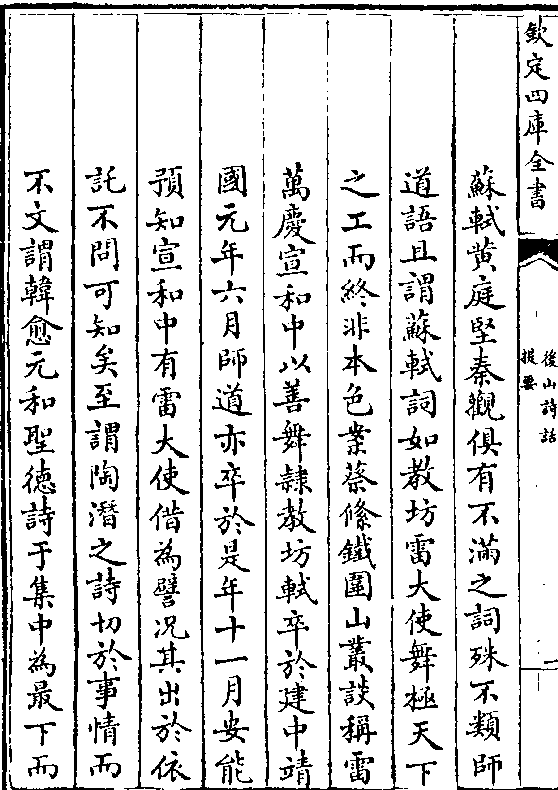 欽定四庫全書
後山詩話
提要
一
蘇軾黄庭堅秦觀俱有不滿之詞殊不類師
道語且謂蘇軾詞如教坊雷大使舞極天下
之工而終非本色案蔡絛鐵圍山叢談稱雷
萬慶宣和中以善舞隷教坊軾卒於建中靖
國元年六月師道亦卒於是年十一月安能
預知宣和中有雷大使借為譬况其出於依
託不問可知矣至謂陶潛之詩切於事情而
不文謂韓愈元和聖徳詩于集中為最下而